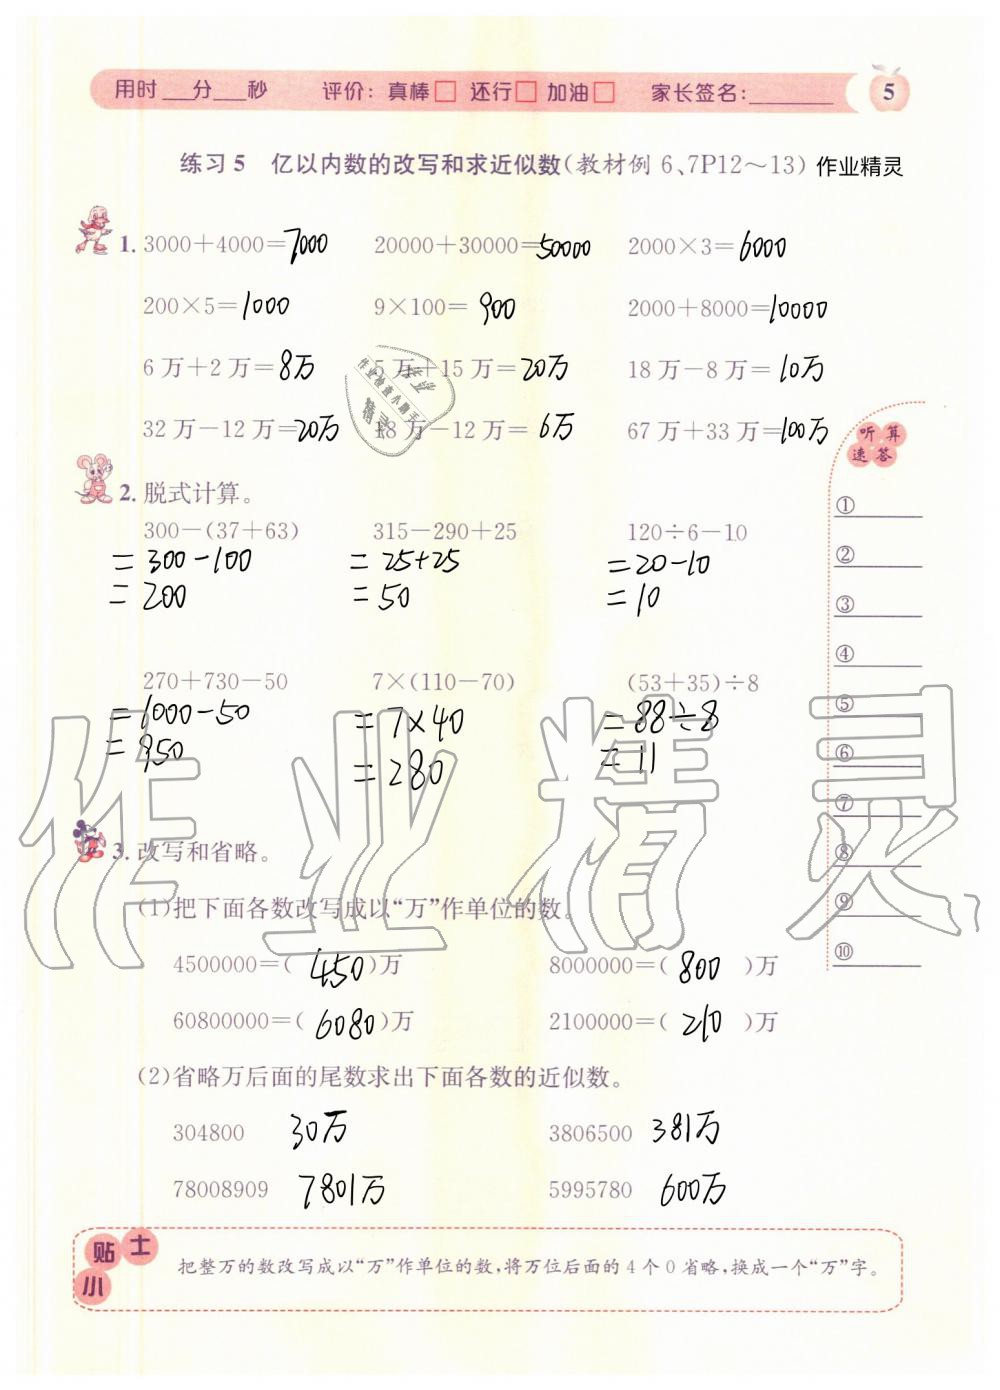 用时___分___秒 评价：真棒□ 还行□ 加油□ 家长签名：________ 5
练习5 亿以内数的改写和求近似数（教材例6、7P12～13）作业精灵
1. 3000＋4000＝7000 20000＋30000＝50000 2000×3＝6000
200×5＝1000 9×100＝900 2000＋8000＝10000
6万＋2万＝8万 5万＋15万＝20万 18万－8万＝10万
32万－12万＝20万 18万－12万＝6万 67万＋33万＝100万
听算
速答
①
②
③
④
⑤
⑥
⑦
⑧
⑨
⑩
2. 脱式计算。
300－(37＋63) 315－290＋25 120÷6－10
＝300－100 ＝25＋25 ＝20－10
＝200 ＝50 ＝10
270＋730－50 7×(110－70) (53＋35)÷8
＝1000－50 ＝7×40 ＝88÷8
＝950 ＝280 ＝11
3. 改写和省略。
(1)把下面各数改写成以“万”作单位的数。
4500000＝(450)万 8000000＝(800)万
60800000＝(6080)万 2100000＝(210)万
(2)省略万后面的尾数求出下面各数的近似数。
304800 30万 3806500 381万
78008909 7801万 5995780 600万
小贴士
把整万的数改写成以“万”作单位的数，将万位后面的4个0省略，换成一个“万”字。
作业精灵